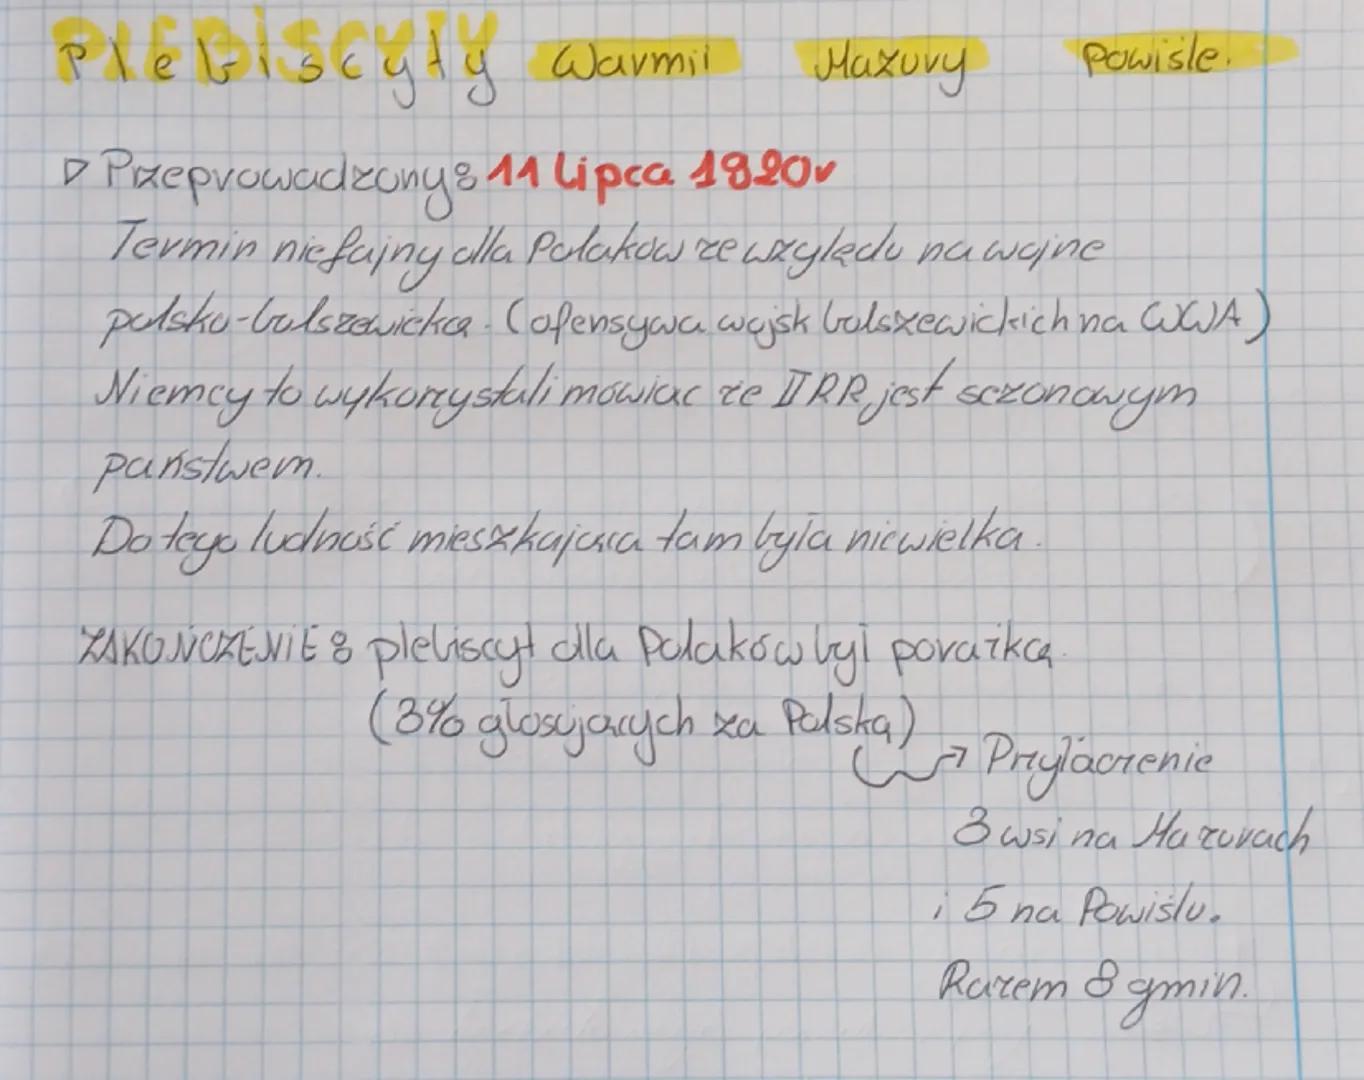 Plebiscyty Warmii Mazury Powiśle.
▷ Przeprowadzony: 11 Lipca 1920r
Termin niefajny dla Polaków ze względu na wojne
polsko-bolszewicką. (ofensywa wojsk bolszewickich na WWA)
Niemcy to wykorzystali mówiąc że II RP jest sezonowym
państwem.
Do tego ludność mieszkająca tam była niewielka.
ZAKOŃCZENIE: plebiscyt dla Polaków był porażką.
(3% głosujących za Polską)
→ Przyłączenie
3 wsi na Mazurach
i 5 na Powiślu.
Razem 8 gmin.